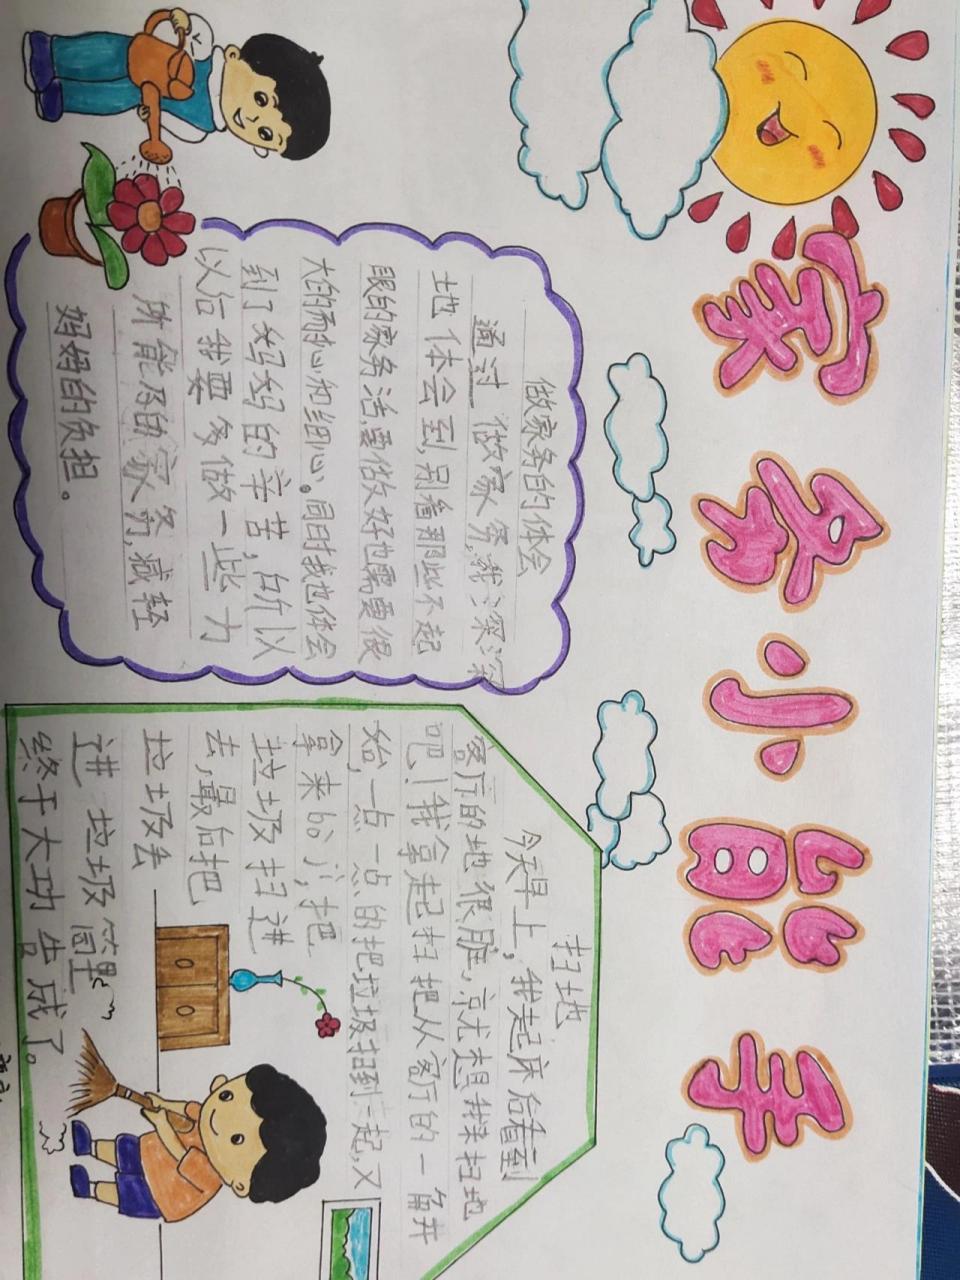 家务小能手
做家务的体会
通过做家务,我深深
地体会到,别看那些不起
眼的家务活,要做好也需要很
大的而心和细心。同时我也体会
到了妈妈的辛苦,所以
以后我要多做一些力
所能及的家务,减轻
妈妈的负担。
扫地
今天早上,我起床后看到
客厅的地很脏,就想我来扫地
吧!我拿起扫把从客厅的一角开
始,一点一点的把垃圾扫到一起,又
拿来bò ji,把
垃圾扫进
去,最后把
垃圾丢
进垃圾筒里
终于大功告成了。